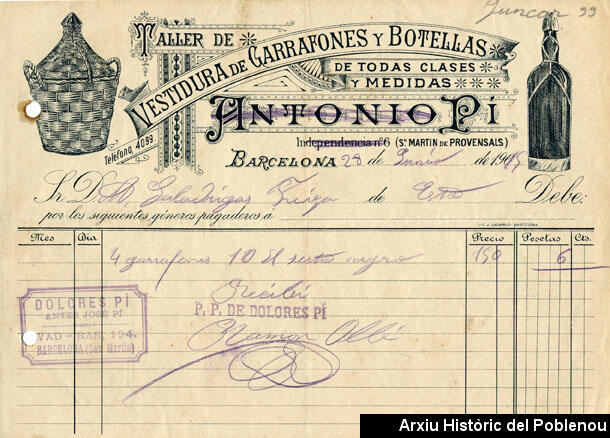 Juncar 99
TALLER DE
VESTIDURA DE GARRAFONES Y BOTELLAS
DE TODAS CLASES
Y MEDIDAS
ANTONIO PÍ
Teléfono, 4099
Independencia nº 6 (Sn. MARTIN DE PROVENSALS)
BARCELONA 28 de Junio de 19
Sr. D. de Esta Debe:
por los siguientes géneros pagaderos á
Mes Día Precio Pesetas Cts.
4 garrafones 10 negro 150 6
Recibí
DOLORES PÍ
ANTES JOSE PÍ
WAD - RAS, 194.
BARCELONA (San Martín)
P. P. DE DOLORES PÍ
Ramon
Arxiu Històric del Poblenou